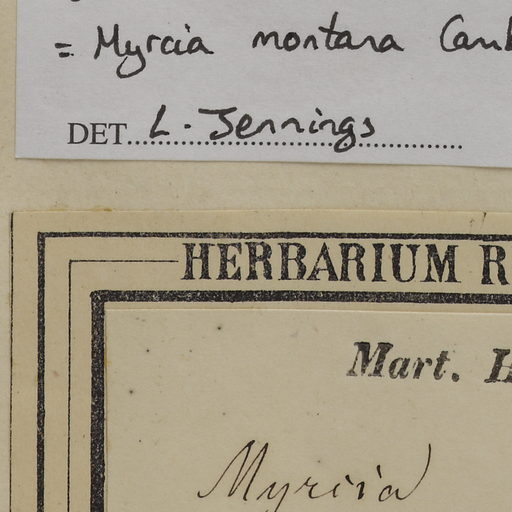 = Myrcia montana Camb
DET. L. Jennings
HERBARIUM R
Mart. H
Myrcia